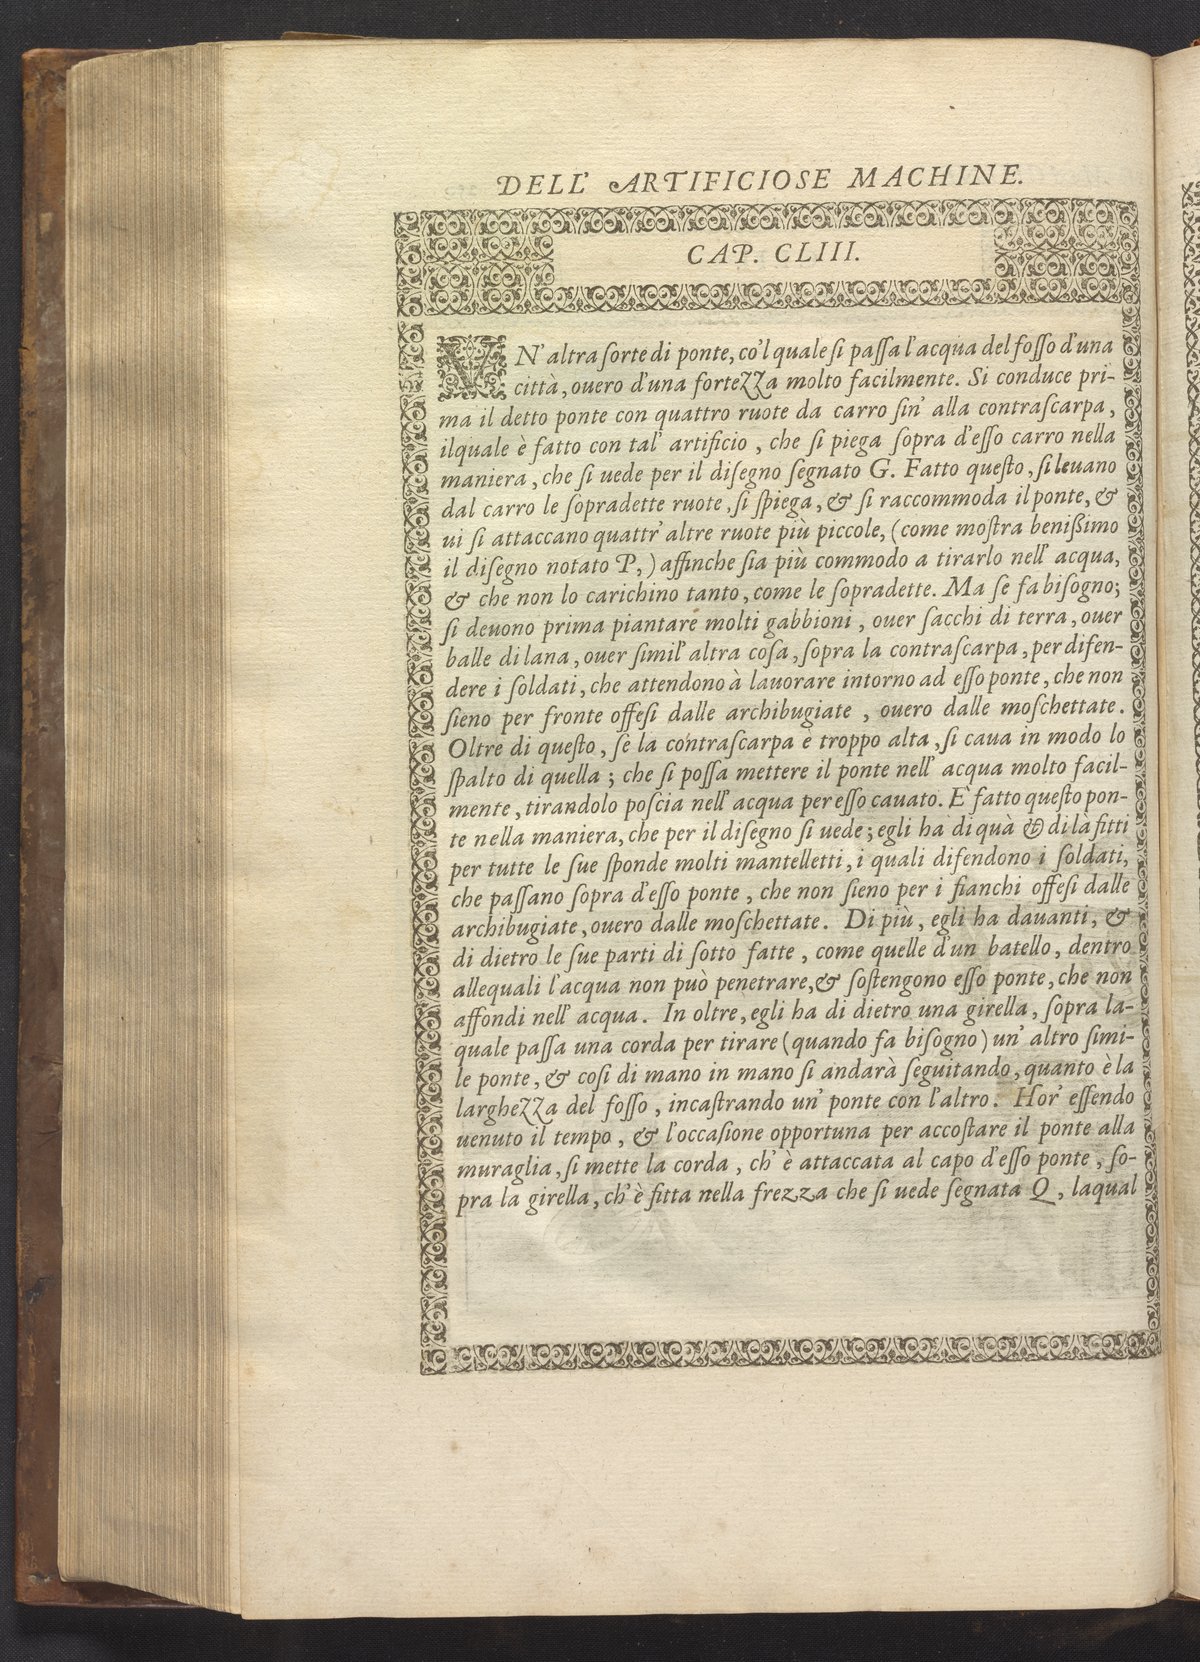 DELL' ARTIFICIOSE MACHINE.
CAP. CLIII.
VN' altra ſorte di ponte, co'l quale ſi paſſa l'acqua del foſſo d'una
città, ouero d'una fortezza molto facilmente. Si conduce pri-
ma il detto ponte con quattro ruote da carro ſin' alla contraſcarpa,
ilquale è fatto con tal' artificio, che ſi piega ſopra d'eſſo carro nella
maniera, che ſi uede per il diſegno ſegnato G. Fatto queſto, ſi leuano
dal carro le ſopradette ruote, ſi ſpiega, & ſi raccommoda il ponte, &
ui ſi attaccano quattr' altre ruote più piccole, (come moſtra benißimo
il diſegno notato P,) affinche ſia più commodo a tirarlo nell' acqua,
& che non lo carichino tanto, come le ſopradette. Ma ſe fa biſogno;
ſi deuono prima piantare molti gabbioni, ouer ſacchi di terra, ouer
balle di lana, ouer ſimil' altra coſa, ſopra la contraſcarpa, per difen-
dere i ſoldati, che attendono à lauorare intorno ad eſſo ponte, che non
ſieno per fronte offeſi dalle archibugiate, ouero dalle moſchettate.
Oltre di queſto, ſe la contraſcarpa è troppo alta, ſi caua in modo lo
ſpalto di quella; che ſi poſſa mettere il ponte nell' acqua molto facil-
mente, tirandolo poſcia nell' acqua per eſſo cauato. E' fatto queſto pon-
te nella maniera, che per il diſegno ſi uede; egli ha di quà & di là fitti
per tutte le ſue ſponde molti mantelletti, i quali difendono i ſoldati,
che paſſano ſopra d'eſſo ponte, che non ſieno per i fianchi offeſi dalle
archibugiate, ouero dalle moſchettate. Di più, egli ha dauanti, &
di dietro le ſue parti di ſotto fatte, come quelle d'un batello, dentro
allequali l'acqua non può penetrare, & ſoſtengono eſſo ponte, che non
affondi nell' acqua. In oltre, egli ha di dietro una girella, ſopra la-
quale paſſa una corda per tirare (quando fa biſogno) un' altro ſimi-
le ponte, & coſi di mano in mano ſi andarà ſeguitando, quanto è la
larghezza del foſſo, incaſtrando un' ponte con l'altro. Hor' eſſendo
uenuto il tempo, & l'occaſione opportuna per accoſtare il ponte alla
muraglia, ſi mette la corda, ch' è attaccata al capo d'eſſo ponte, ſo-
pra la girella, ch' è fitta nella frezza che ſi uede ſegnata Q, laqual